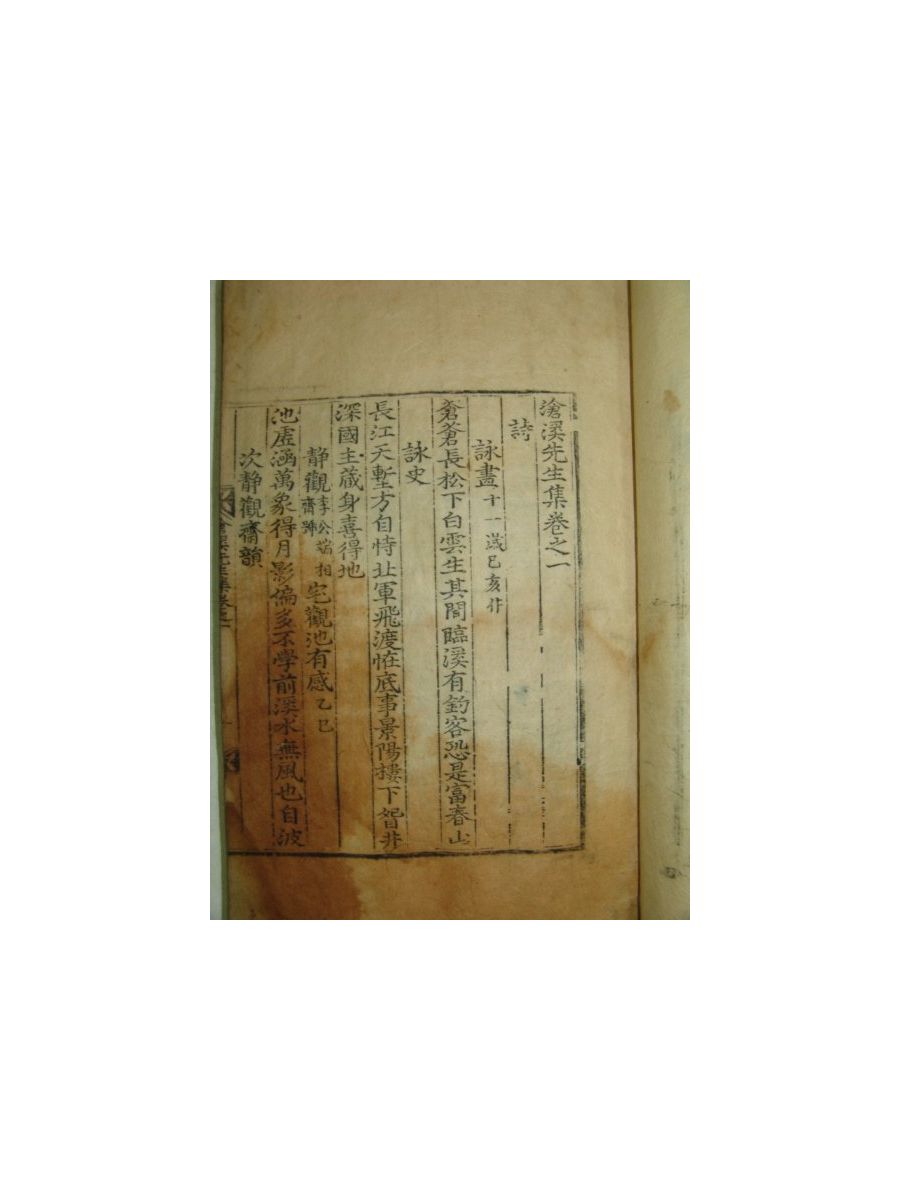 滄溪先生集卷之一
詩
詠畫 十一歲己亥作
蒼蒼長松下白雲生其間臨溪有釣客恐是富春山
詠史
長江天塹方自恃北軍飛渡恠底事景陽樓下眢井
深國主藏身喜得地
靜觀齋 李公端相號 宅觀池有感 乙巳
池虛涵萬象得月影偏多不學前溪水無風也自波
次靜觀齋韻
滄溪先生集卷之一